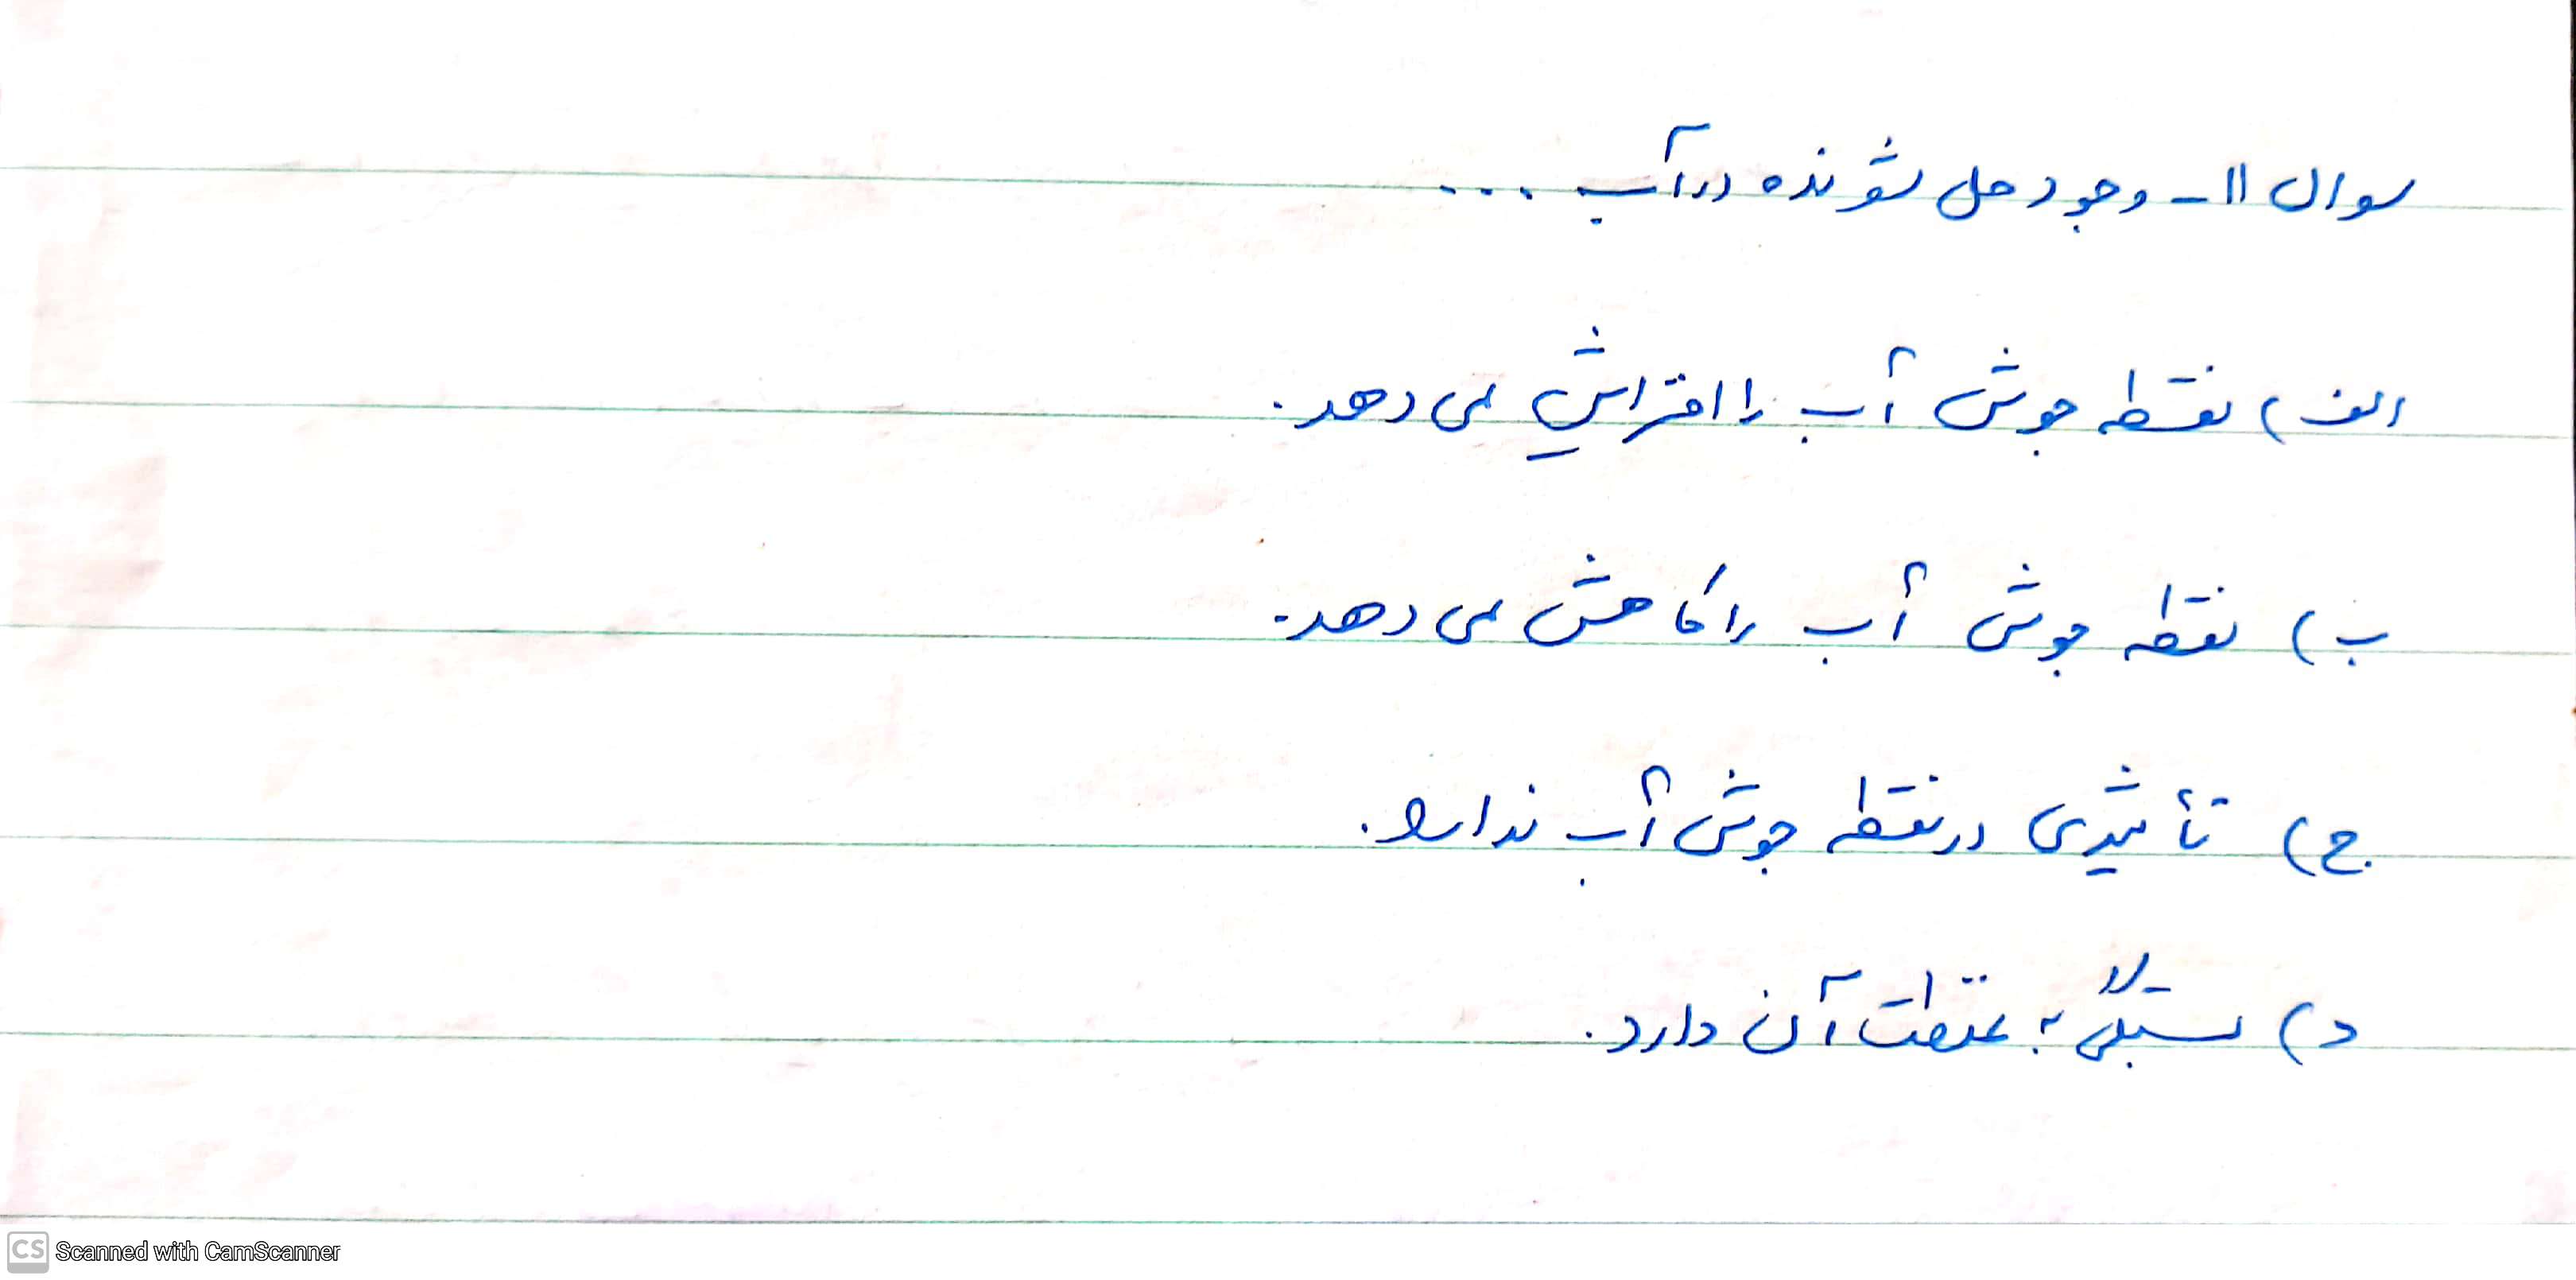 سوال ۱۱- وجود حل شونده در آب ...
الف) نقطه جوش آب را افزایش می دهد.
ب) نقطه جوش آب را کاهش می دهد.
ج) تأثیری در نقطه جوش آب ندارد.
د) بستگی به غلظت آن دارد.
CS Scanned with CamScanner